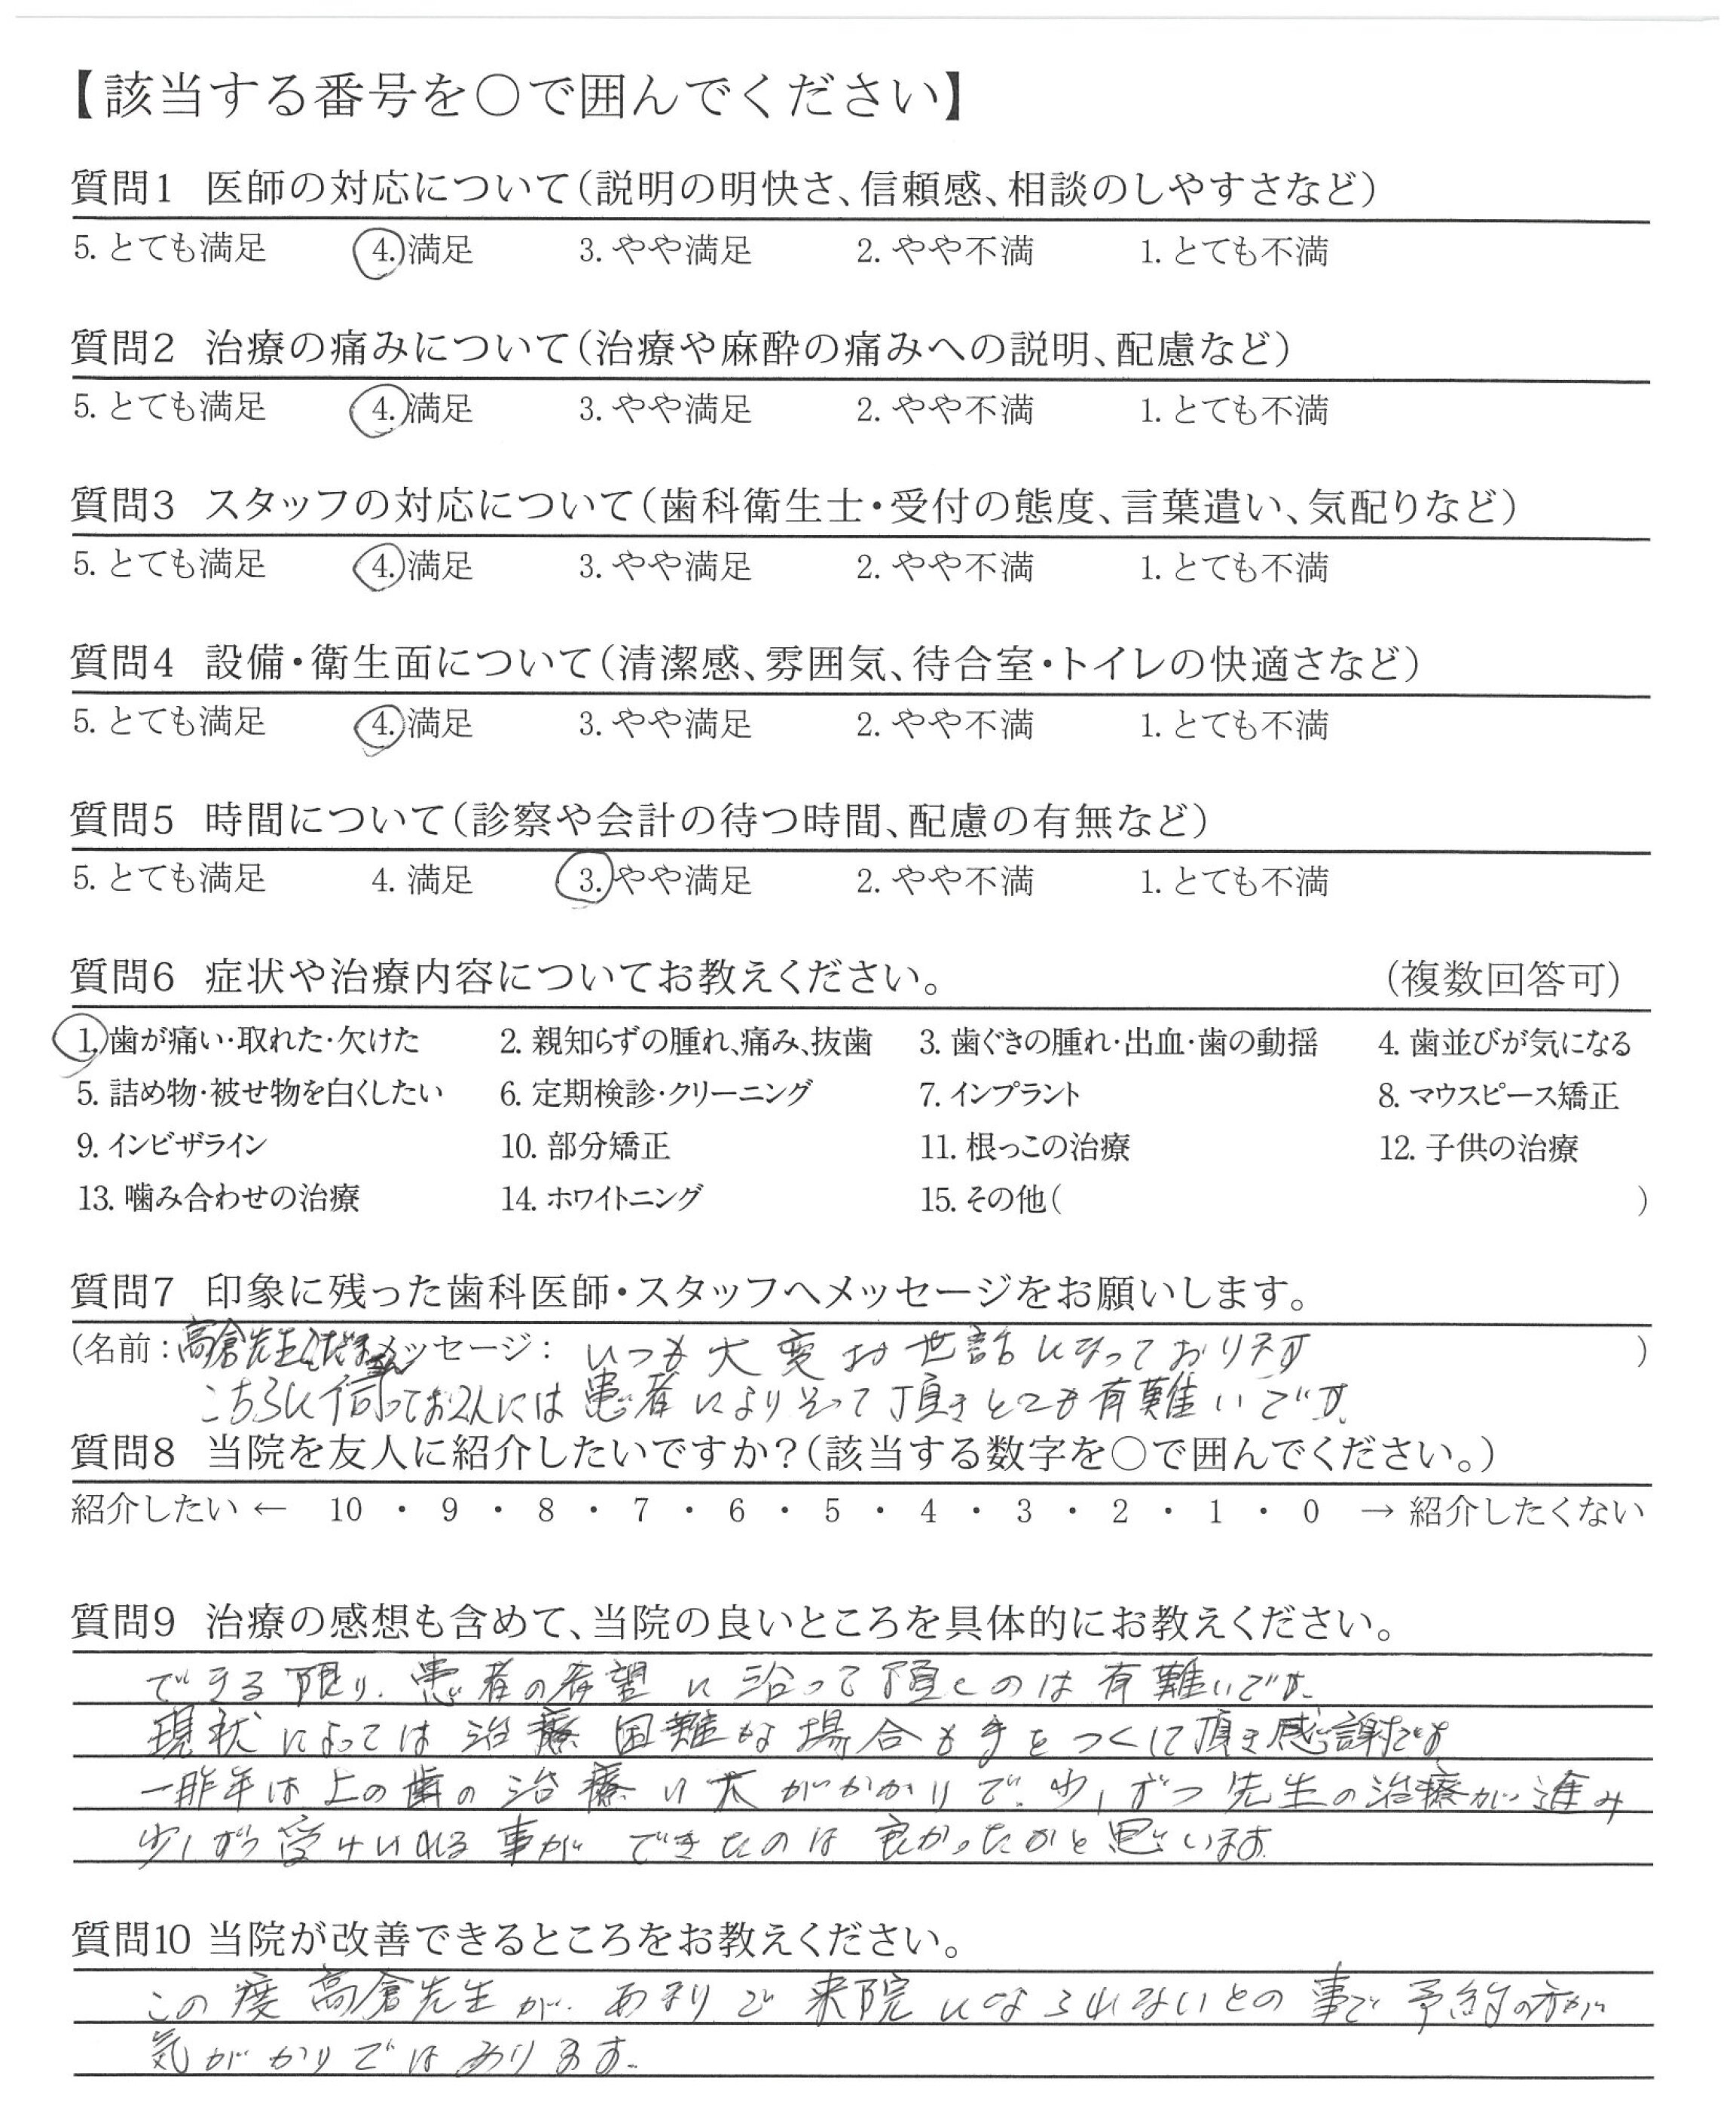 【該当する番号を○で囲んでください】
質問1 医師の対応について(説明の明快さ、信頼感、相談のしやすさなど)
5. とても満足 4. 満足 3. やや満足 2. やや不満 1. とても不満
質問2 治療の痛みについて(治療や麻酔の痛みへの説明、配慮など)
5. とても満足 4. 満足 3. やや満足 2. やや不満 1. とても不満
質問3 スタッフの対応について(歯科衛生士・受付の態度、言葉遣い、気配りなど)
5. とても満足 4. 満足 3. やや満足 2. やや不満 1. とても不満
質問4 設備・衛生面について(清潔感、雰囲気、待合室・トイレの快適さなど)
5. とても満足 4. 満足 3. やや満足 2. やや不満 1. とても不満
質問5 時間について(診察や会計の待つ時間、配慮の有無など)
5. とても満足 4. 満足 3. やや満足 2. やや不満 1. とても不満
質問6 症状や治療内容についてお教えください。 (複数回答可)
1. 歯が痛い・取れた・欠けた 2. 親知らずの腫れ、痛み、抜歯 3. 歯ぐきの腫れ・出血・歯の動揺 4. 歯並びが気になる
5. 詰め物・被せ物を白くしたい 6. 定期検診・クリーニング 7. インプラント 8. マウスピース矯正
9. インビザライン 10. 部分矯正 11. 根っこの治療 12. 子供の治療
13. 噛み合わせの治療 14. ホワイトニング 15. その他( )
質問7 印象に残った歯科医師・スタッフへメッセージをお願いします。
(名前:高倉先生 こだまさん メッセージ: いつも大変お世話になっております )
こちらに伺ってお2人には患者によりそって頂きとても有難いです。
質問8 当院を友人に紹介したいですか?(該当する数字を○で囲んでください。)
紹介したい ← 10 ・ 9 ・ 8 ・ 7 ・ 6 ・ 5 ・ 4 ・ 3 ・ 2 ・ 1 ・ 0 → 紹介したくない
質問9 治療の感想も含めて、当院の良いところを具体的にお教えください。
できる限り、患者の希望に沿って頂くのは有難いです。
現状によっては治療困難な場合も手をつくして頂き感謝です
一昨年は上の歯の治療い大がかかりで、少しずつ先生の治療が進み
少しずつ受けいれる事ができたのは良かったかと思います。
質問10 当院が改善できるところをお教えください。
この度高倉先生が、あまりご来院になられないとの事で予約の方が
気がかりではあります。